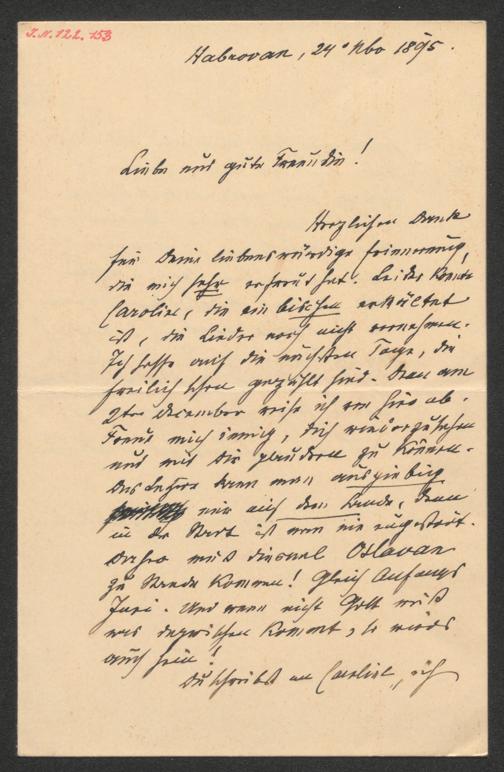 I.N. 122.153
Habrovan, 24. Nbo 1895.
Liebe und gute Freundin!
Herzlichen Dank
für Deine liebenswürdige Erinnerung,
die mich sehr erfreut hat. Leider konnte
Caroline, die ein bischen erkältet
ist, die Lieder noch nicht vornehmen.
Ich hoffe auf die nächsten Tage, die
freilich schon gezählt sind. Denn am
2ten December reise ich von hier ab.
Freue mich innig, Dich wiederzusehen
und mit Dir plaudern zu können.
Das Letztere kann man ausgiebig
nur auf dem Lande, denn
in der Stadt ist man nie ungestört.
Daher muß diesmal Oslavan
zu Stande kommen! Gleich Anfangs
Juni. Und wenn nicht Gott weiß
was dazwischen kommt, so wirds
auch sein!
Du schreibst an Caroline, ich